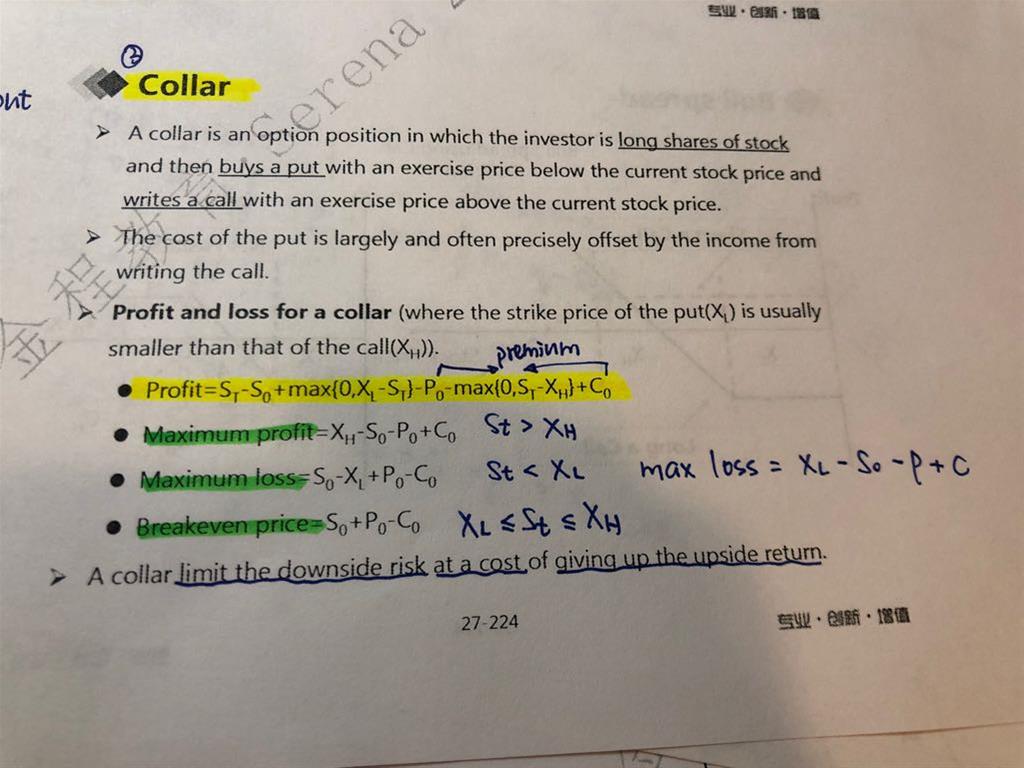 专业·创新·增值
②
Collar
A collar is an option position in which the investor is long shares of stock
and then buys a put with an exercise price below the current stock price and
writes a call with an exercise price above the current stock price.
The cost of the put is largely and often precisely offset by the income from
writing the call.
Profit and loss for a collar (where the strike price of the put(X_L) is usually
smaller than that of the call(X_H)).
premium
Profit=S_T-S_0+max{0,X_L-S_T}-P_0-max{0,S_T-X_H}+C_0
Maximum profit=X_H-S_0-P_0+C_0 St > X_H
Maximum loss=S_0-X_L+P_0-C_0 St < X_L max loss = X_L-S_0-P+C
Breakeven price=S_0+P_0-C_0 X_L ≤ St ≤ X_H
A collar limit the downside risk at a cost of giving up the upside return.
27-224
专业·创新·增值
金程教育
Serena